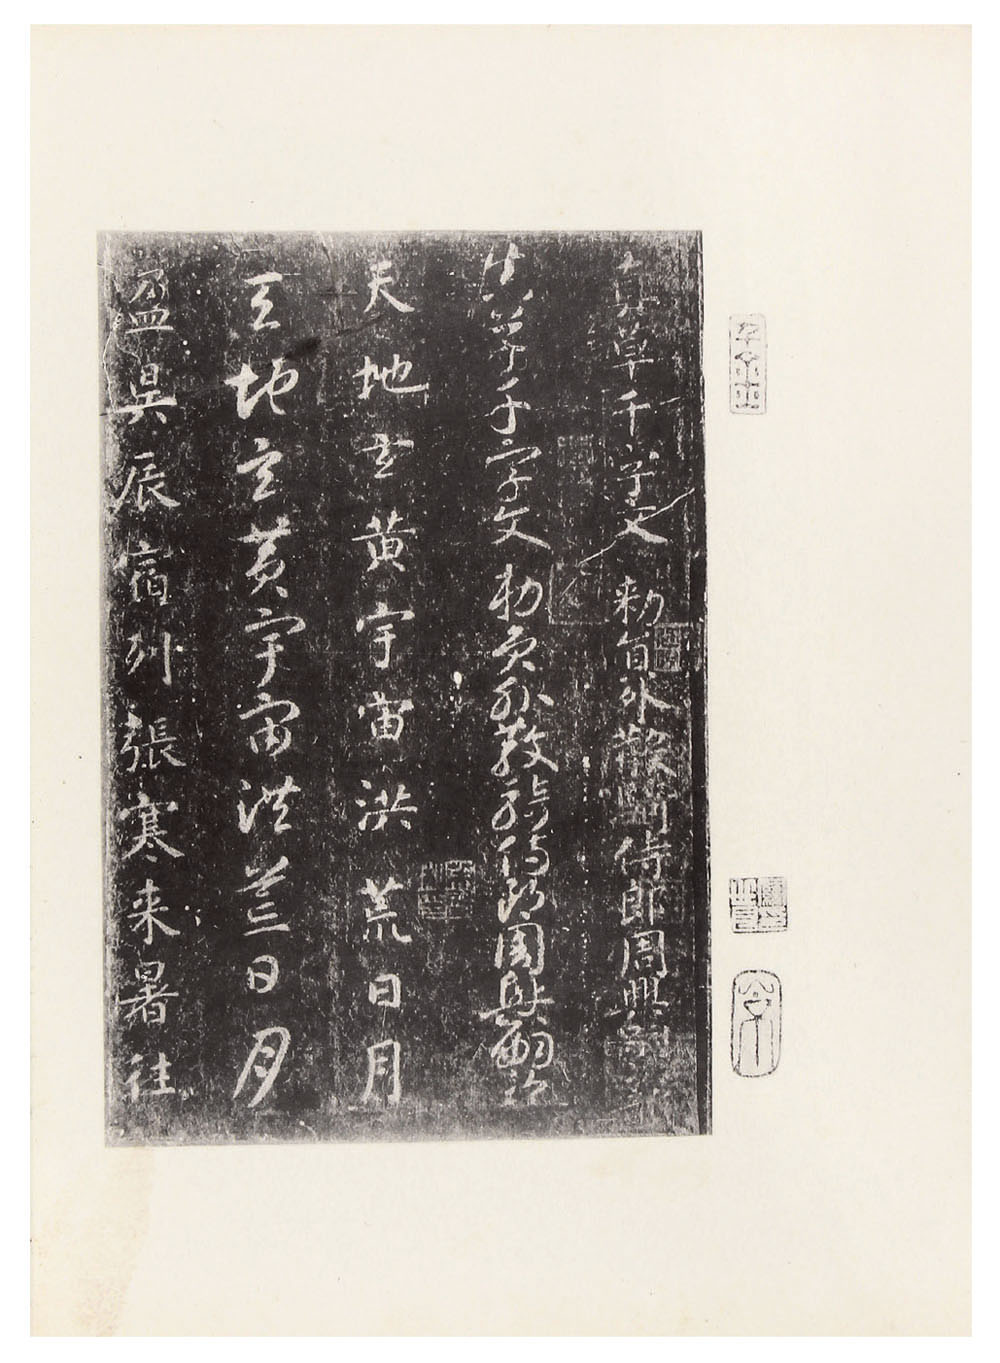 真草千字文 勅員外散騎侍郎周興嗣次韻
真草千字文 勅員外散騎侍郎周興嗣次韻
天地玄黄宇宙洪荒日月
天地玄黄宇宙洪荒日月
盈昃辰宿列張寒来暑往